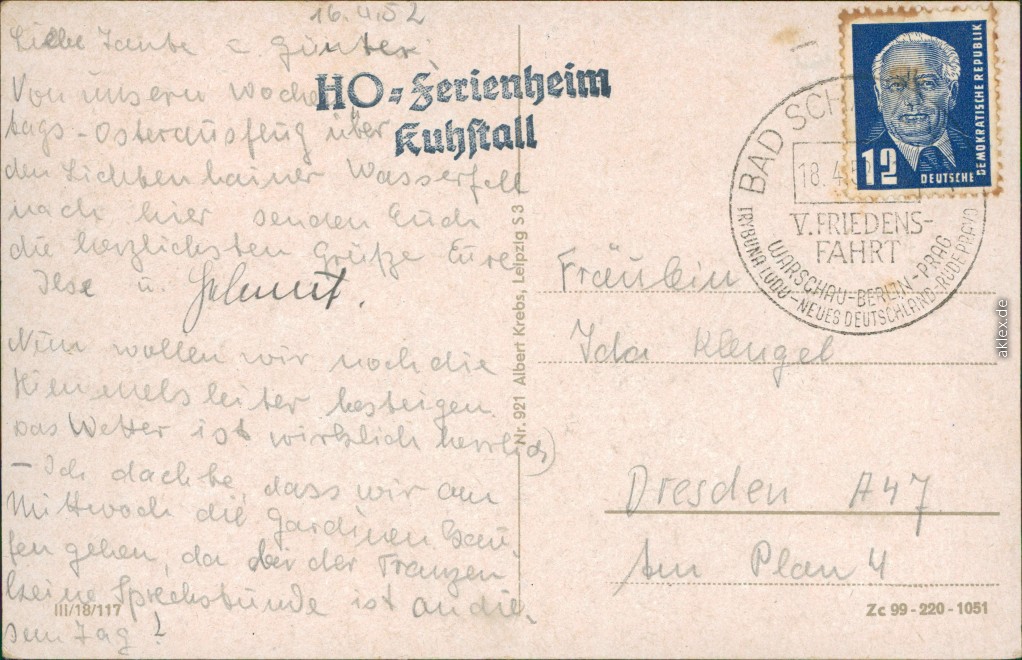 16.4.52
Liebe Tante u Günter!
Von unsern Wochen
tags-Osterausflug über
den Lichtenhainer Wasserfall
nach hier senden Euch
die herzlichsten Grüße Eure
Ilse u. Helmut.
Nun wollen wir noch die
Himmelsleiter besteigen.
Das Wetter ist wirklich herrlich)
- Ich dachte, dass wir am
Mittwoch die Gardinen kau-
fen gehen, da bei der Franzen
keine Sprechstunde ist an die-
sem Tag!
III/18/117
HO-Ferienheim
Kuhstall
Nr. 921 Albert Krebs, Leipzig S 3
BAD SCH
18.4.
V. FRIEDENS-
FAHRT
WARSCHAU-BERLIN-PRAG
TRYBUNA LUDU-NEUES DEUTSCHLAND-RUDE PRAVO
12
DEUTSCHE
DEMOKRATISCHE REPUBLIK
Fräulein
Ida Klengel
Dresden A47
Am Plan 4
Zc 99-220-1051
aklex.de